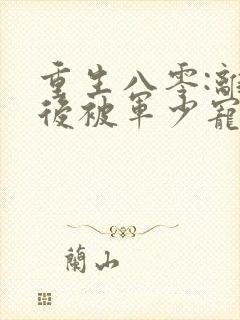 重生八零:離
後被軍少寵
蘭山